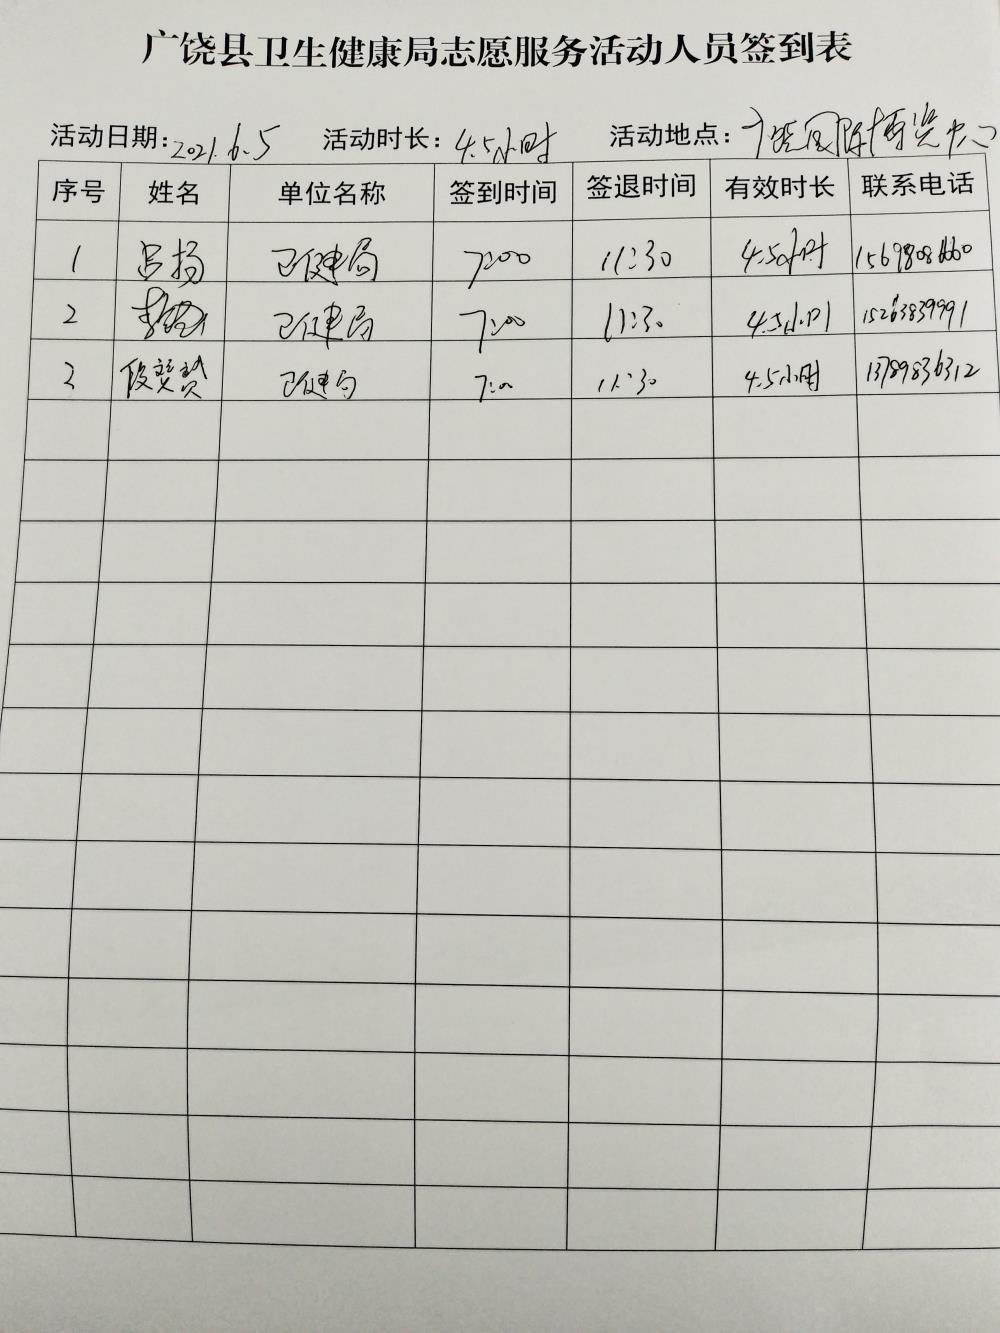 广饶县卫生健康局志愿服务活动人员签到表
活动日期：2021.6.5 活动时长：4.5小时 活动地点：广饶国际博览中心
序号 姓名 单位名称 签到时间 签退时间 有效时长 联系电话
1 吕扬 卫健局 7:00 11:30 4.5小时 1569808660
2 卫健局 7:00 11:30 4.5小时 15263839991
3 段赟赟 卫健局 7:00 11:30 4.5小时 13789836312